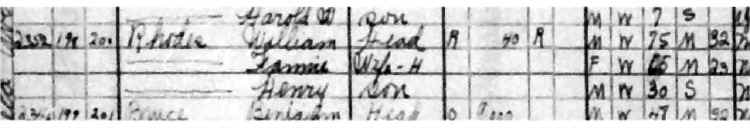 Harold W son M W 7 S
2302 198 200 Rhodes William Head R 40 R M W 75 M 32
Fannie Wife-H F W M 23
Henry son M W 30 S
199 201 Bruce Benjamin Head O M W 47 M